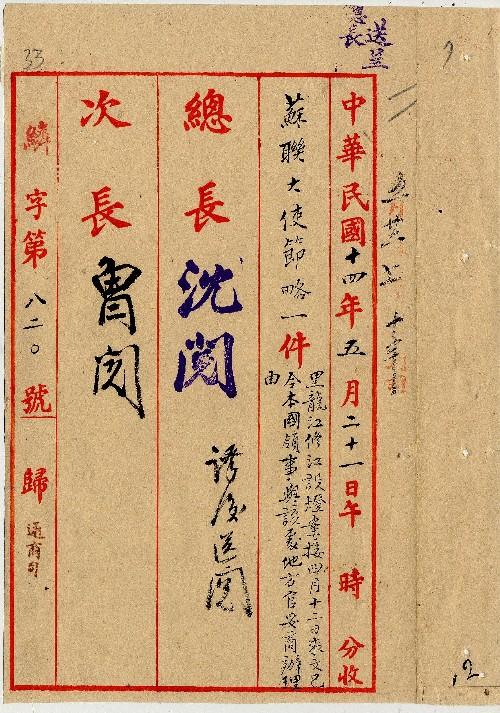 送呈
總長
中華民國十四年五月二十一日午 時 分收
蘇聯大使節略一件
黑龍江修江設燈案接四月十二日來文已
令本國領事與該處地方官妥商辦理
由
總長 沈閱
譯后送閱
次長 曾閱
字第八二〇號 歸 通商司
33
12